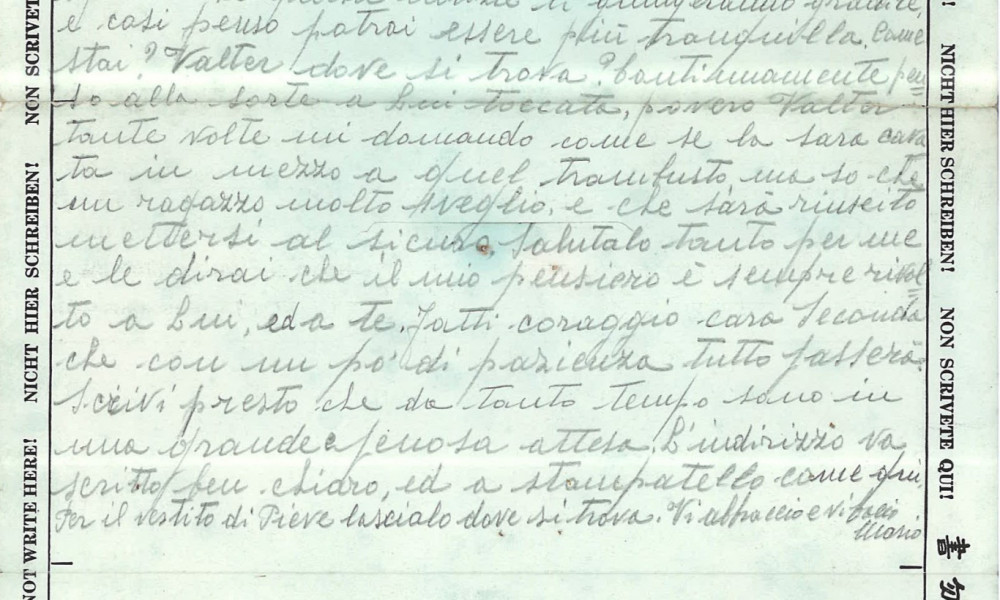 giungeranno gradite,
e così penso potrai essere più tranquilla. Come
stai? Valter dove si trova? Continuamente pen
so alla sorte a Lui toccata, povero Valter
tante volte mi domando come se la sarà cava
ta in mezzo a quel trambusto, ma so che
un ragazzo molto sveglio, e che sarà riuscito
mettersi al sicuro. Salutalo tanto per me
e le dirai che il mio pensiero è sempre rivol
to a Lui, ed a te. Fatti coraggio cara Seconda
che con un po' di pazienza tutto passerà.
Scrivi presto che da tanto tempo sono in
una grande e penosa attesa. L'indirizzo va
scritto ben chiaro, ed a stampatello come qui,
Per il vestito di Pieve lascialo dove si trova. Vi abbraccio e vi bacio
Mario
NOT WRITE HERE! NICHT HIER SCHREIBEN! NON SCRIVET
! NICHT HIER SCHREIBEN! NON SCRIVETE QUI! 書 勿